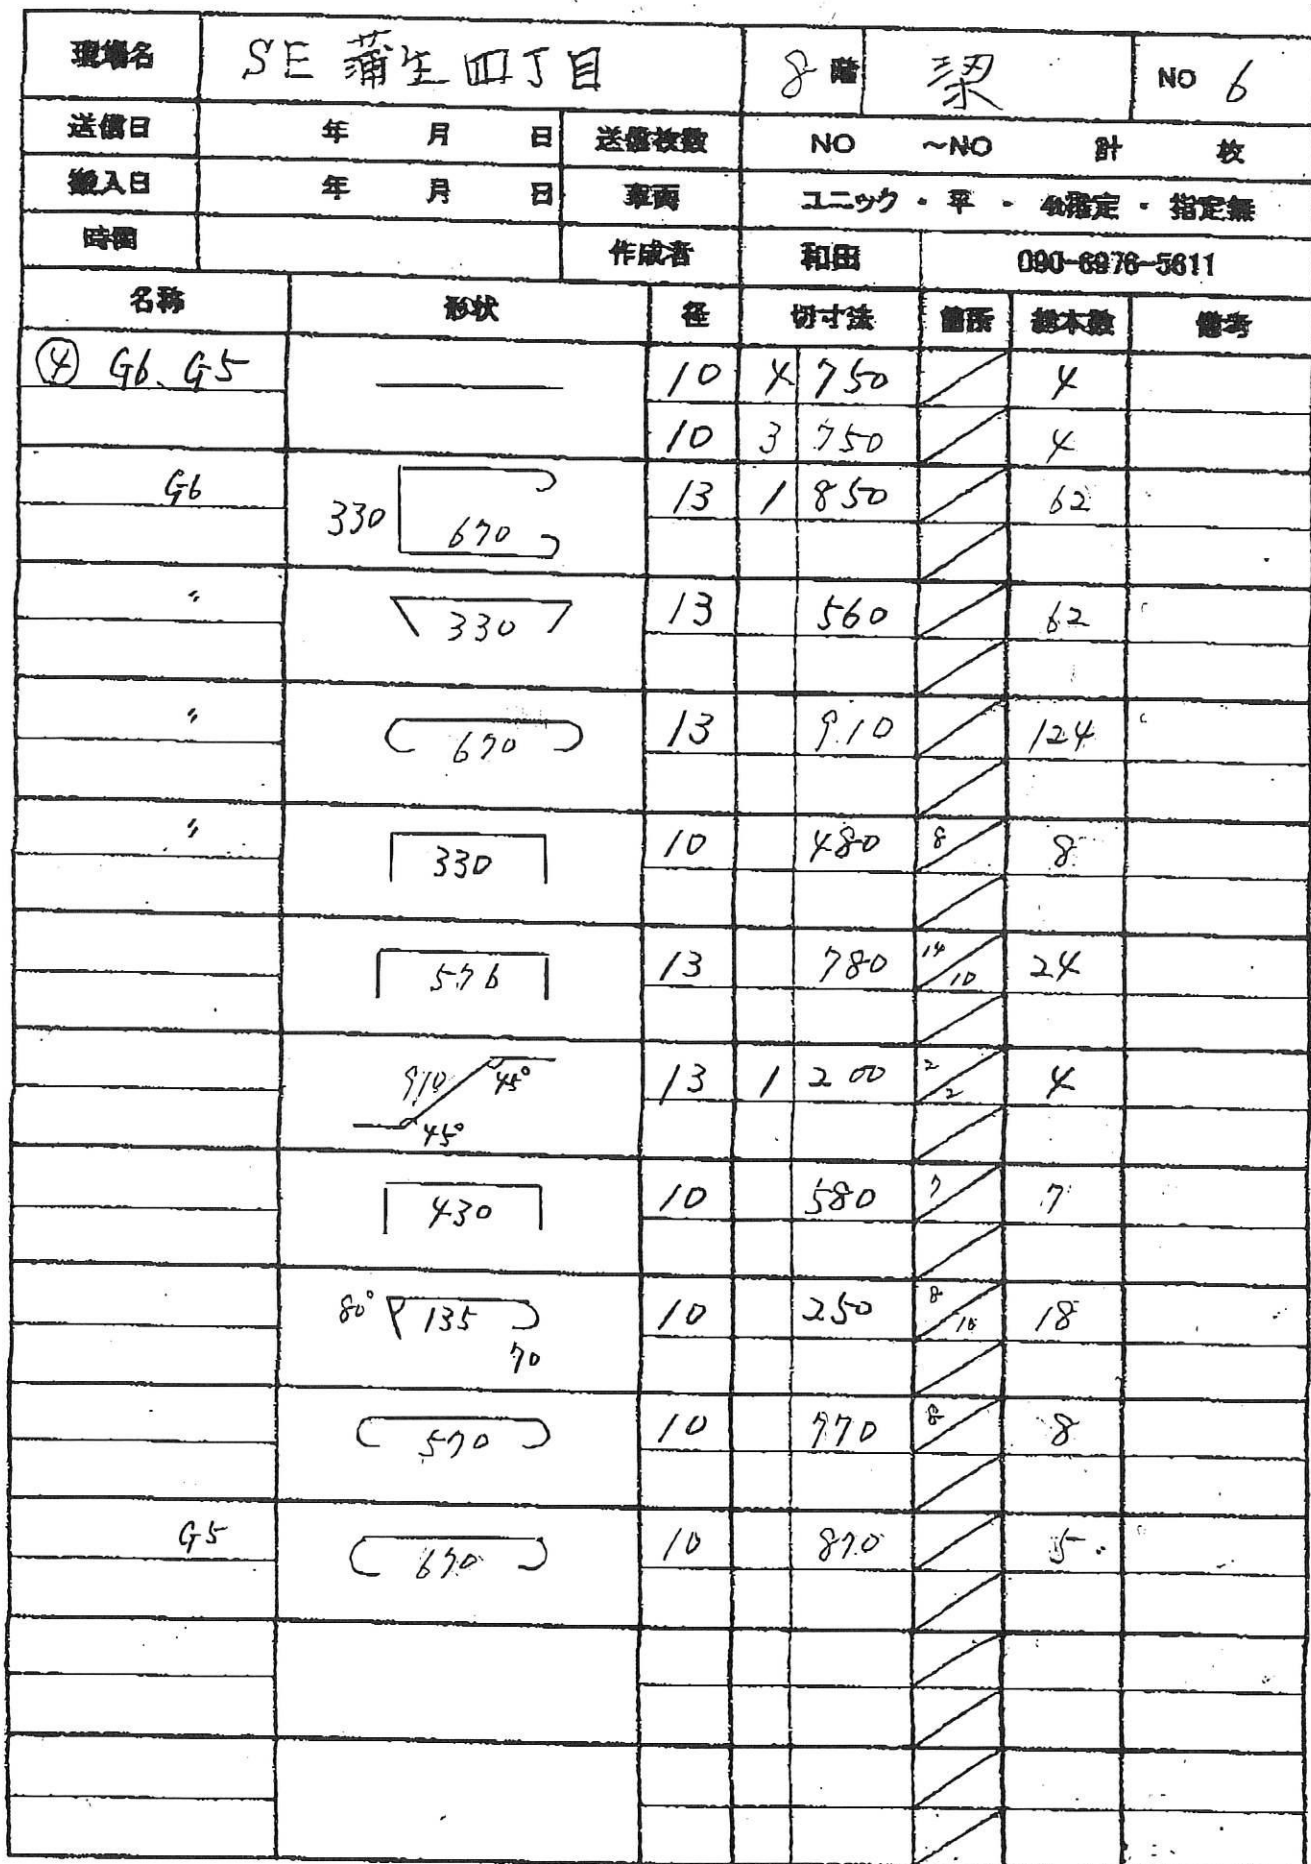 現場名 SE 蒲生四丁目 8 階 梁 NO 6
送信日 年 月 日 送信枚数 NO ～NO 計 枚
搬入日 年 月 日 車両 ユニック・平・4t指定・指定無
時間 作成者 和田 090-6976-5611
名称 形状 径 切寸法 箇所 総本数 備考
④ G6、G5 10 4 750 4
10 3 750 4
G6 330 670 13 1 850 62
〃 330 13 560 62
〃 670 13 910 124
〃 330 10 480 8 8
576 13 780 14/10 24
910 45° 45° 13 1 200 2/2 4
430 10 580 7 7
80° 135 70 10 250 8/10 18
570 10 770 8 8
G5 670 10 870 5